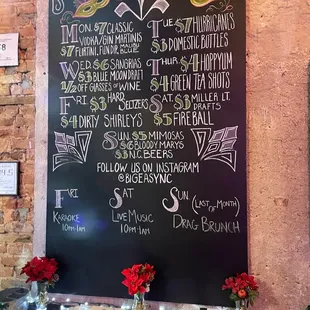 Mon. $7 Classic
Vodka/Gin Martinis
$7 Flintini, Fundr,
Tue $7 Hurricanes
$3 Domestic Bottles
Wed. $6 Sangrias
$3 Blue Moon Draft
1/2 Off Glasses of Wine
Thur. $4 Hoppyum
$4 Green Tea Shots
Fri $3 Hard Seltzers
$4 Dirty Shirleys
Sat. $3 Miller Lt. Drafts
$5 Fire Ball
Sun. $5 Mimosas
$6 Bloody Marys
$3 N.C. Beers
Follow us on Instagram
@bigeasync
Fri
Karaoke
10pm-1am
Sat
Live Music
10pm-1am
Sun (Last of Month)
Drag Brunch